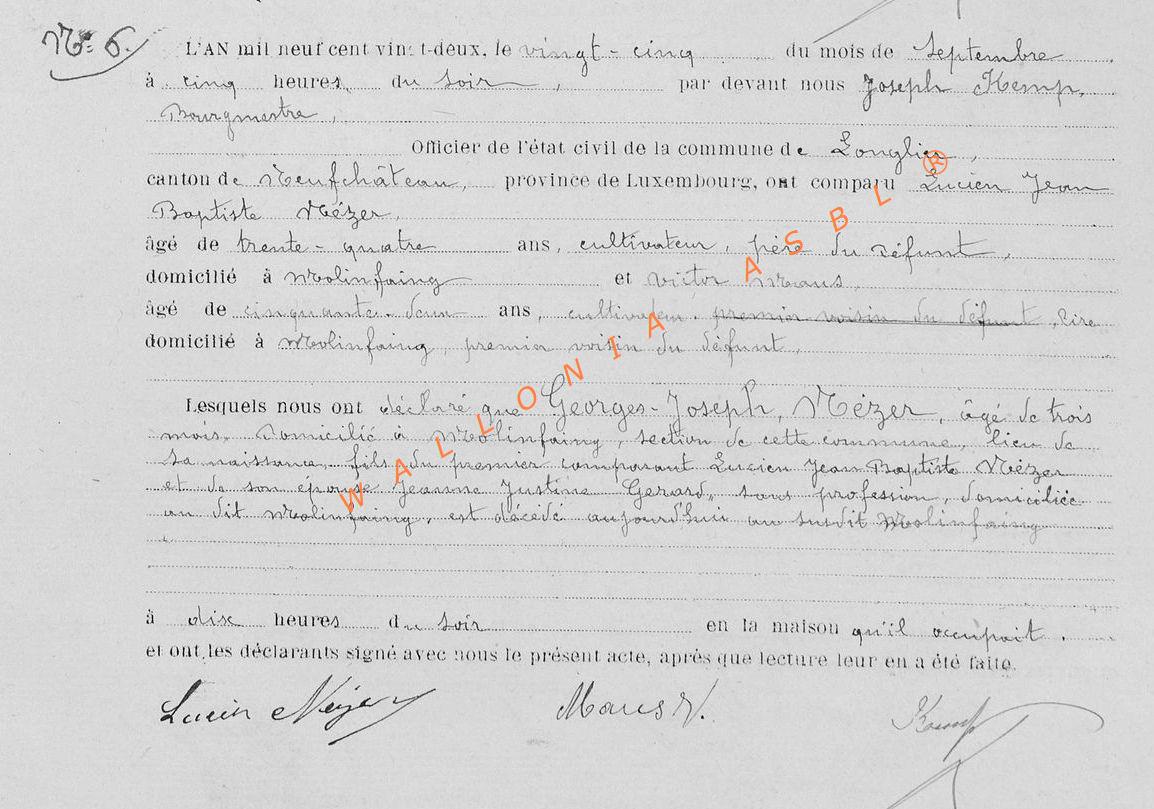 N° 6.
L'AN mil neuf cent vingt-deux, le vingt-cinq du mois de Septembre
à cinq heures du soir, par devant nous Joseph Kemp,
Bourgmestre,
Officier de l'état civil de la commune de Longlier,
canton de Neufchâteau, province de Luxembourg, ont comparu Lucien Jean
Baptiste Nézer,
âgé de trente-quatre ans, cultivateur, père du défunt,
domicilié à Molinfaing et Victor Maus,
âgé de cinquante-deux ans, cultivateur, premier voisin du défunt, lire
domicilié à Molinfaing, premier voisin du défunt,
Lesquels nous ont déclaré que Georges-Joseph, Nézer, âgé de trois
mois, domicilié à Molinfaing, section de cette commune, lieu de
sa naissance, fils du premier comparant Lucien Jean Baptiste Nézer
et de son épouse Jeanne Justine Gerard, sans profession, domiciliée
au dit Molinfaing, est décédé aujourd'hui au susdit Molinfaing
à dix heures du soir en la maison qu'il occupait.
et ont les déclarants signé avec nous le présent acte, après que lecture leur en a été faite.
Lucien Nézer Maus V. Kemp
WALLONIA ASBL ®